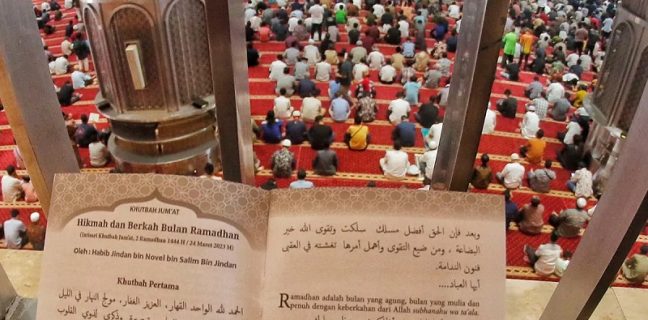 KHUTBAH JUM'AT
Hikmah dan Berkah Bulan Ramadhan
(Intisari Khutbah Jum'at, 2 Ramadhan 1444 H / 24 Maret 2023 M)
Oleh : Habib Jindan bin Novel bin Salim Bin Jindan
Khutbah Pertama
الحمد لله الواحد القهار، العزيز الغفار، مولج النهار في الليل
وذكرى لذوي القلوب
وبعد فإن الحق أفضل مسلك سلكت وتقوى الله خير
البضاعة ، ومن ضيع التقوى وأهمل أمرها تغشته في العقبى
فنون الندامة.
أيها العباد...
Ramadhan adalah bulan yang agung, bulan yang mulia dan
penuh dengan keberkahan dari Allah subhanahu wa ta'ala.